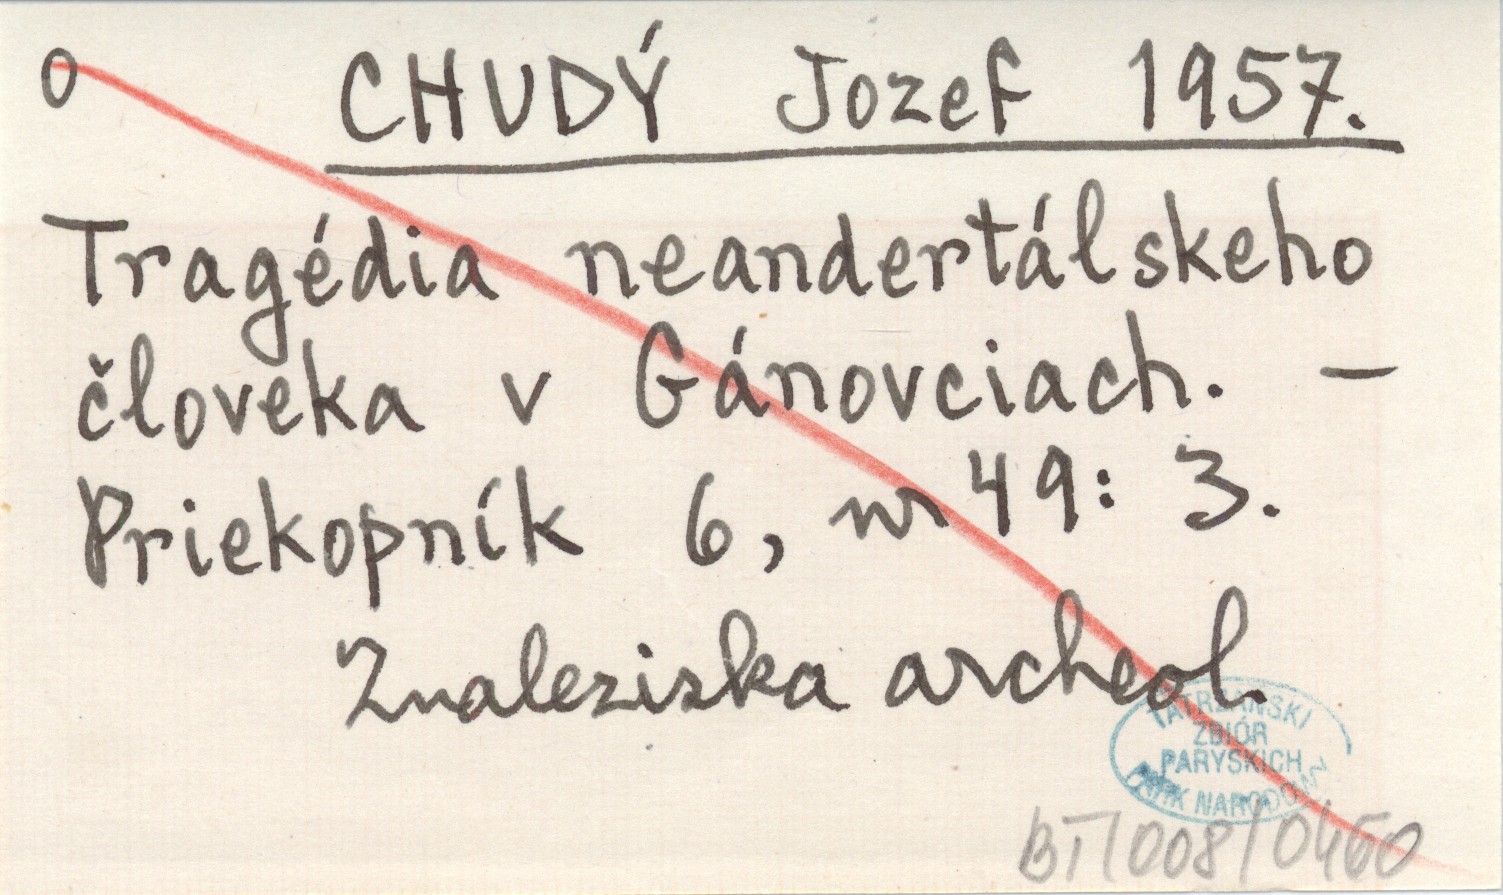 O CHUDÝ Jozef 1957.
Tragédia neandertálskeho
človeka v Gánovciach. –
Priekopník 6, nr 49: 3.
Znaleziska archeol.
TATRZAŃSKI
ZBIÓR
PARYSKICH
PARK NARODOWY
BT/008/0460